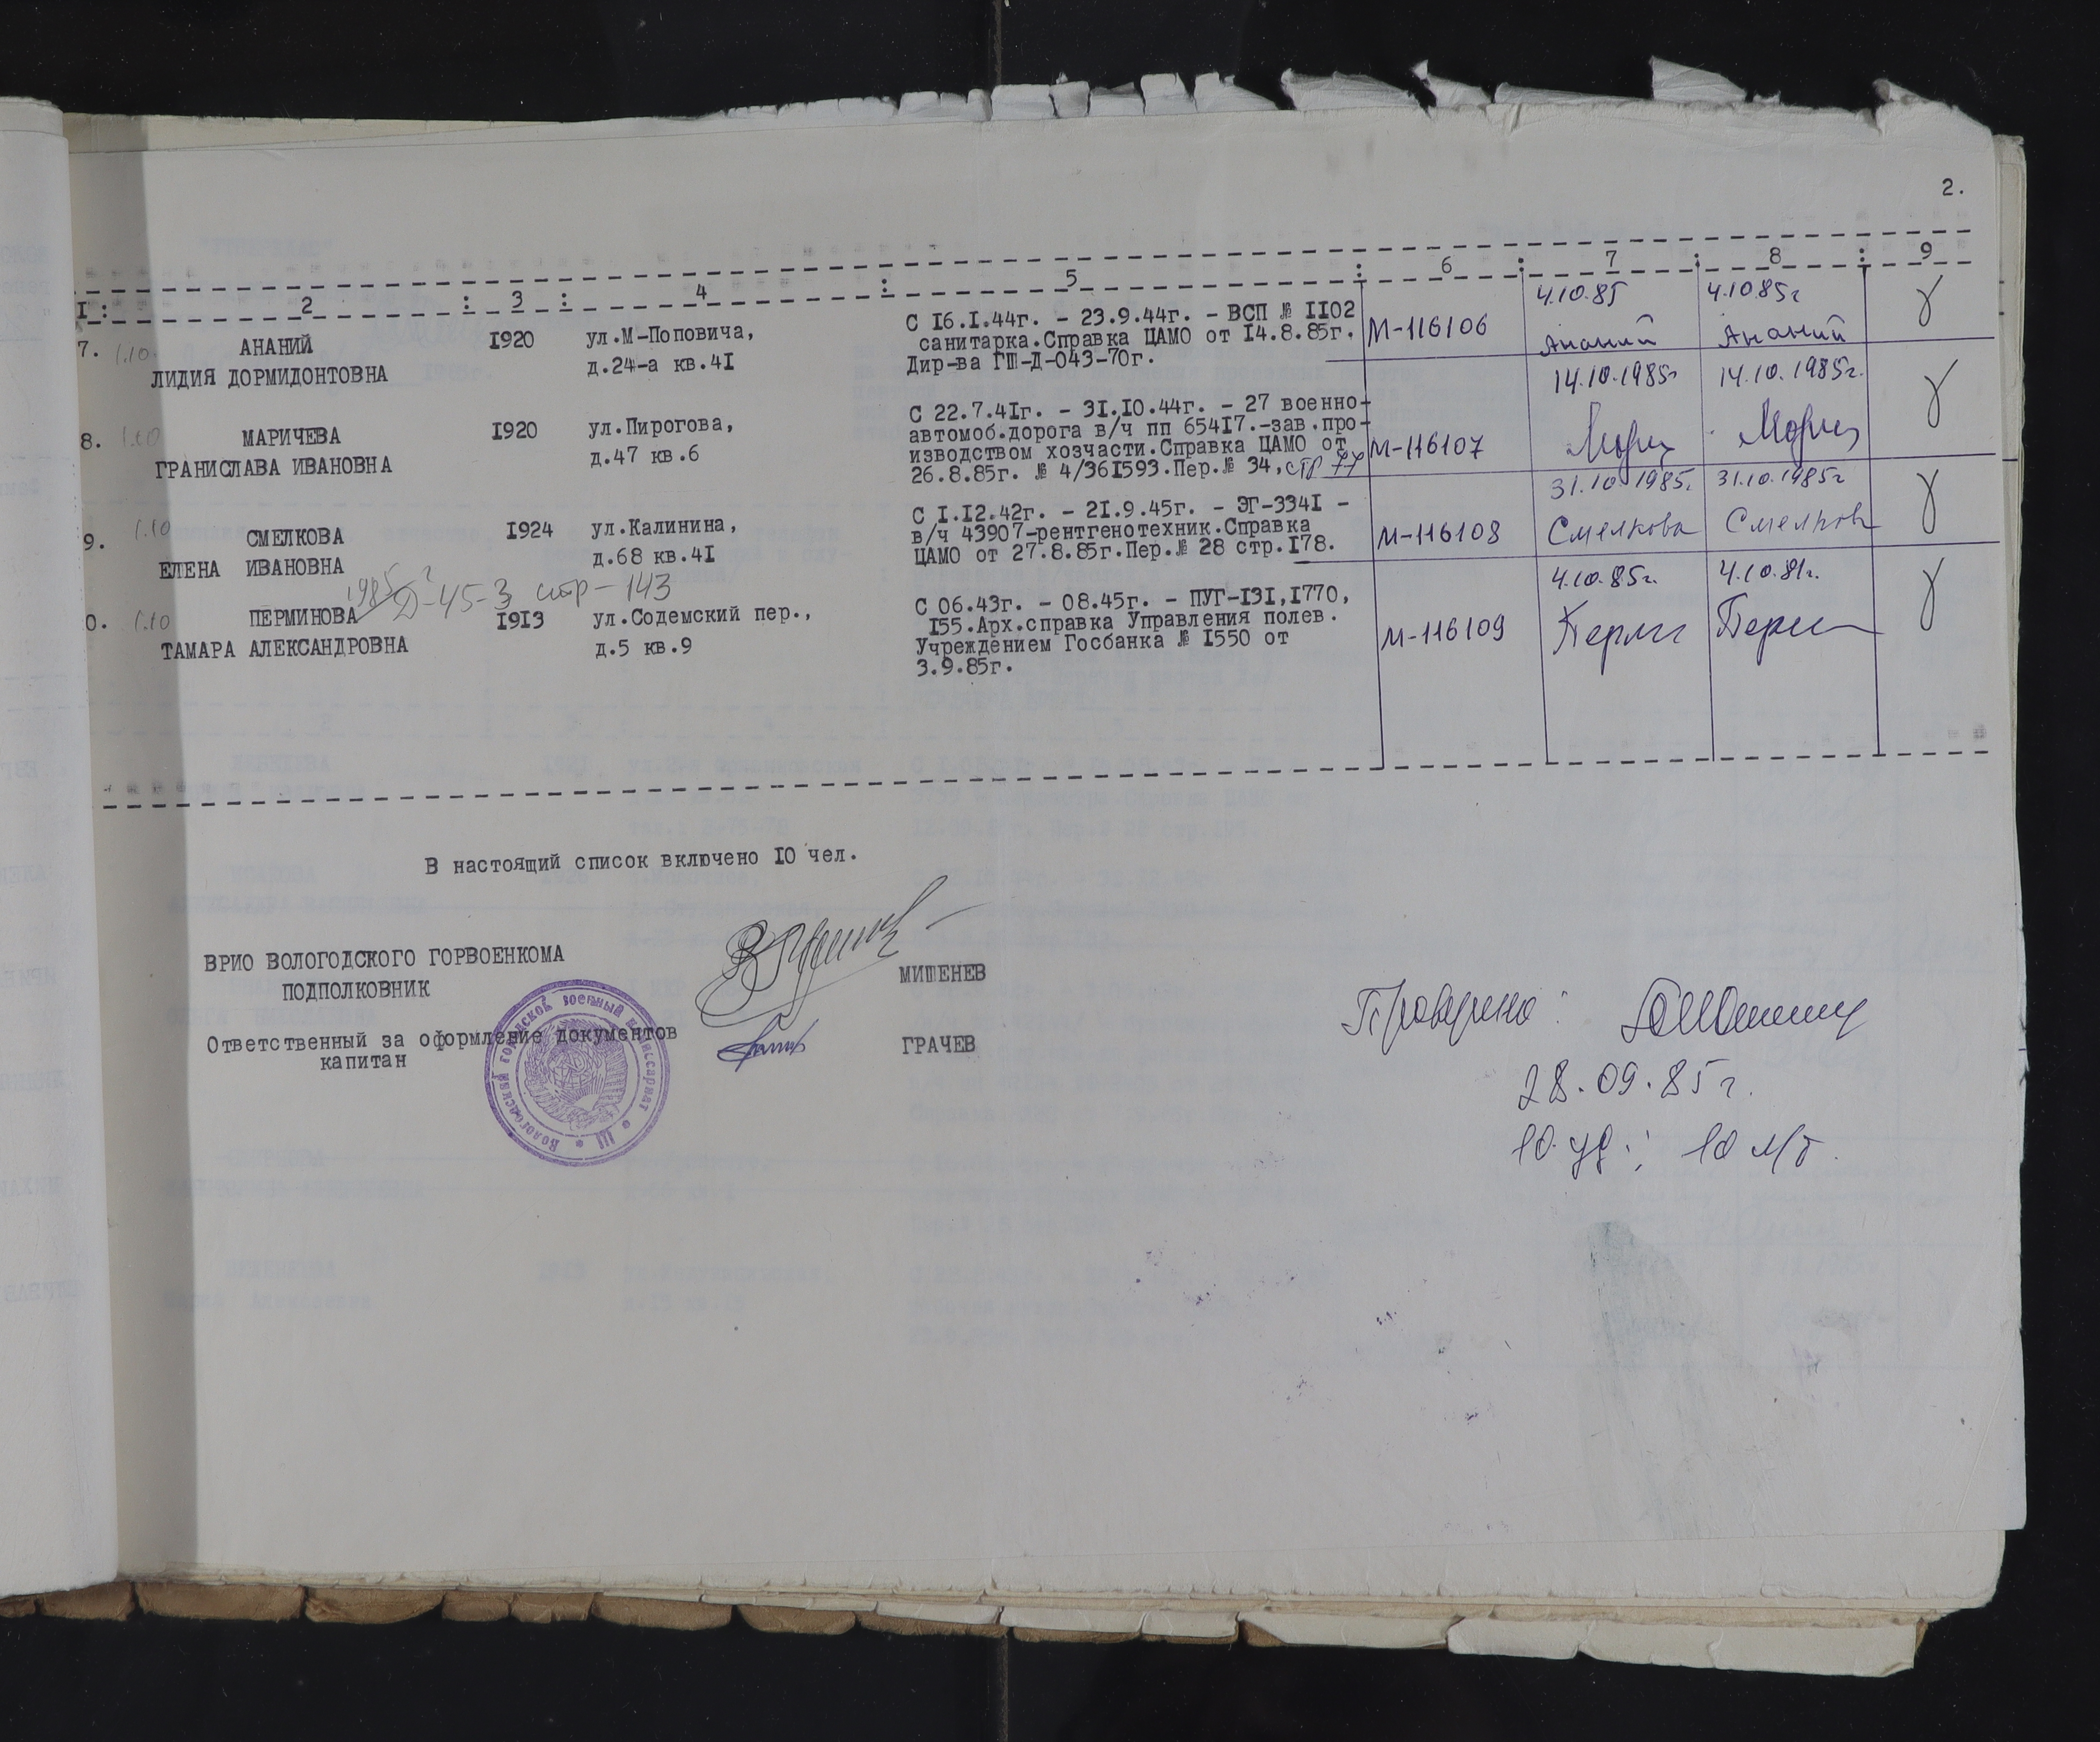 2.
I : 2 : 3 : 4 : 5 : 6 : 7 : 8 : 9
7. 1.10 АНАНИЙ 1920 ул.М-Поповича, С 16.I.44г. - 23.9.44г. - ВСП № II02 М-116106 4.10.85 4.10.85г
ЛИДИЯ ДОРМИДОНТОВНА д.24-а кв.4I санитарка.Справка ЦАМО от I4.8.85г. Ананий Ананий
Дир-ва ГШ-Д-043-70г.
8. 1.10 МАРИЧЕВА 1920 ул.Пирогова, С 22.7.4Iг. - 3I.I0.44г. - 27 военно- М-116107 14.10.1985г 14.10.1985г.
ГРАНИСЛАВА ИВАНОВНА д.47 кв.6 автомоб.дорога в/ч пп 654I7.-зав.про-
изводством хозчасти.Справка ЦАМО от
26.8.85г. № 4/36I593.Пер.№ 34, стр 77
9. 1.10 СМЕЛКОВА I924 ул.Калинина, С I.I2.42г. - 2I.9.45г. - ЭГ-334I - М-116108 31.10.1985. 31.10.1985г
ЕЛЕНА ИВАНОВНА д.68 кв.4I в/ч 43907-рентгенотехник.Справка Смелкова Смелкова
ЦАМО от 27.8.85г.Пер.№ 28 стр.I78.
1985г Д-45-3 стр-143
0. 1.10 ПЕРМИНОВА I9I3 ул.Содемский пер., С 06.43г. - 08.45г. - ПУГ-I3I,I770, М-116109 4.10.85г. 4.10.81г.
ТАМАРА АЛЕКСАНДРОВНА д.5 кв.9 I55.Арх.справка Управления полев.
Учреждением Госбанка № I550 от
3.9.85г.
В настоящий список включено I0 чел.
ВРИО ВОЛОГОДСКОГО ГОРВОЕНКОМА
ПОДПОЛКОВНИК МИШЕНЕВ
Ответственный за оформление документов
капитан ГРАЧЕВ
Вологодский городской военный комиссариат
Проверено:
28.09.85г.
10 уд.; 10 м/г.